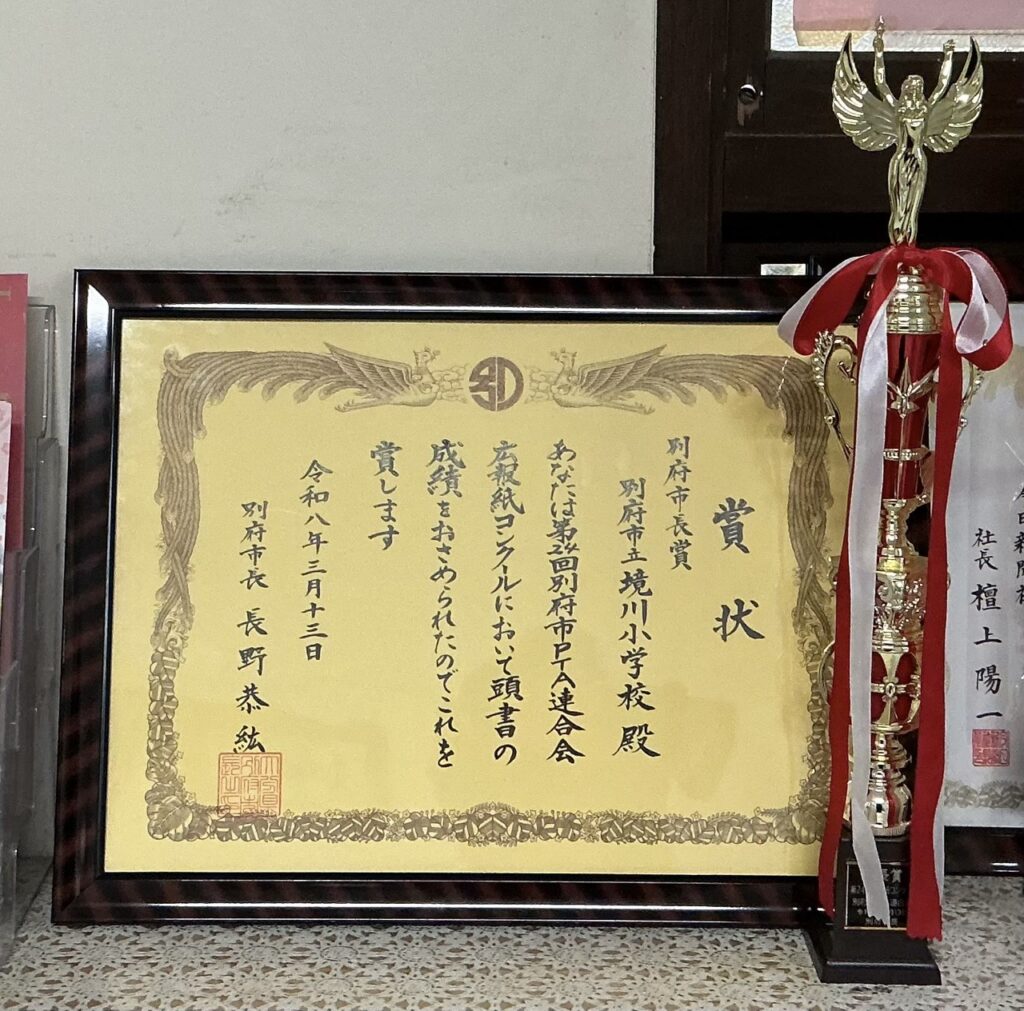 賞状
別府市長賞
別府市立境川小学校殿
あなたは第24回別府市PTA連合会
広報紙コンクールにおいて頭書の
成績をおさめられたのでこれを
賞します
令和八年三月十三日
別府市長 長野恭紘
社長 檀上陽一